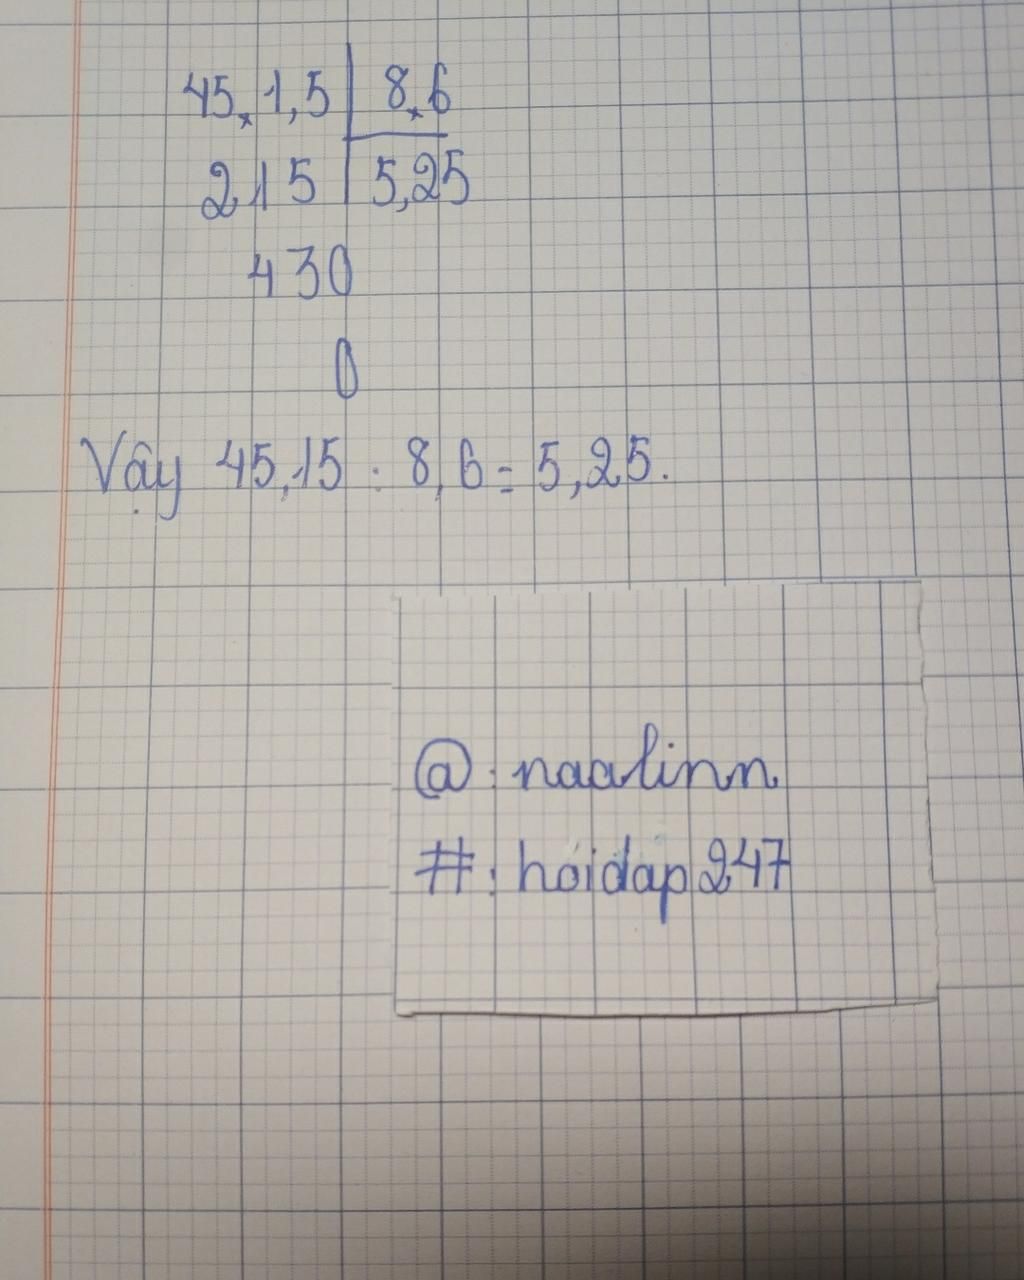 45,1,5 8,6
215 5,25
430
0
Vậy 45,15 : 8,6 = 5,25.
@ : naalinn
# : hoidap247